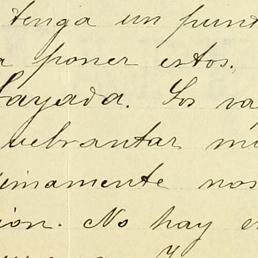 tenga un punt
a poner estos.
Gayada. Los va
uebrantar mi
imamente nos
ion. No hay e